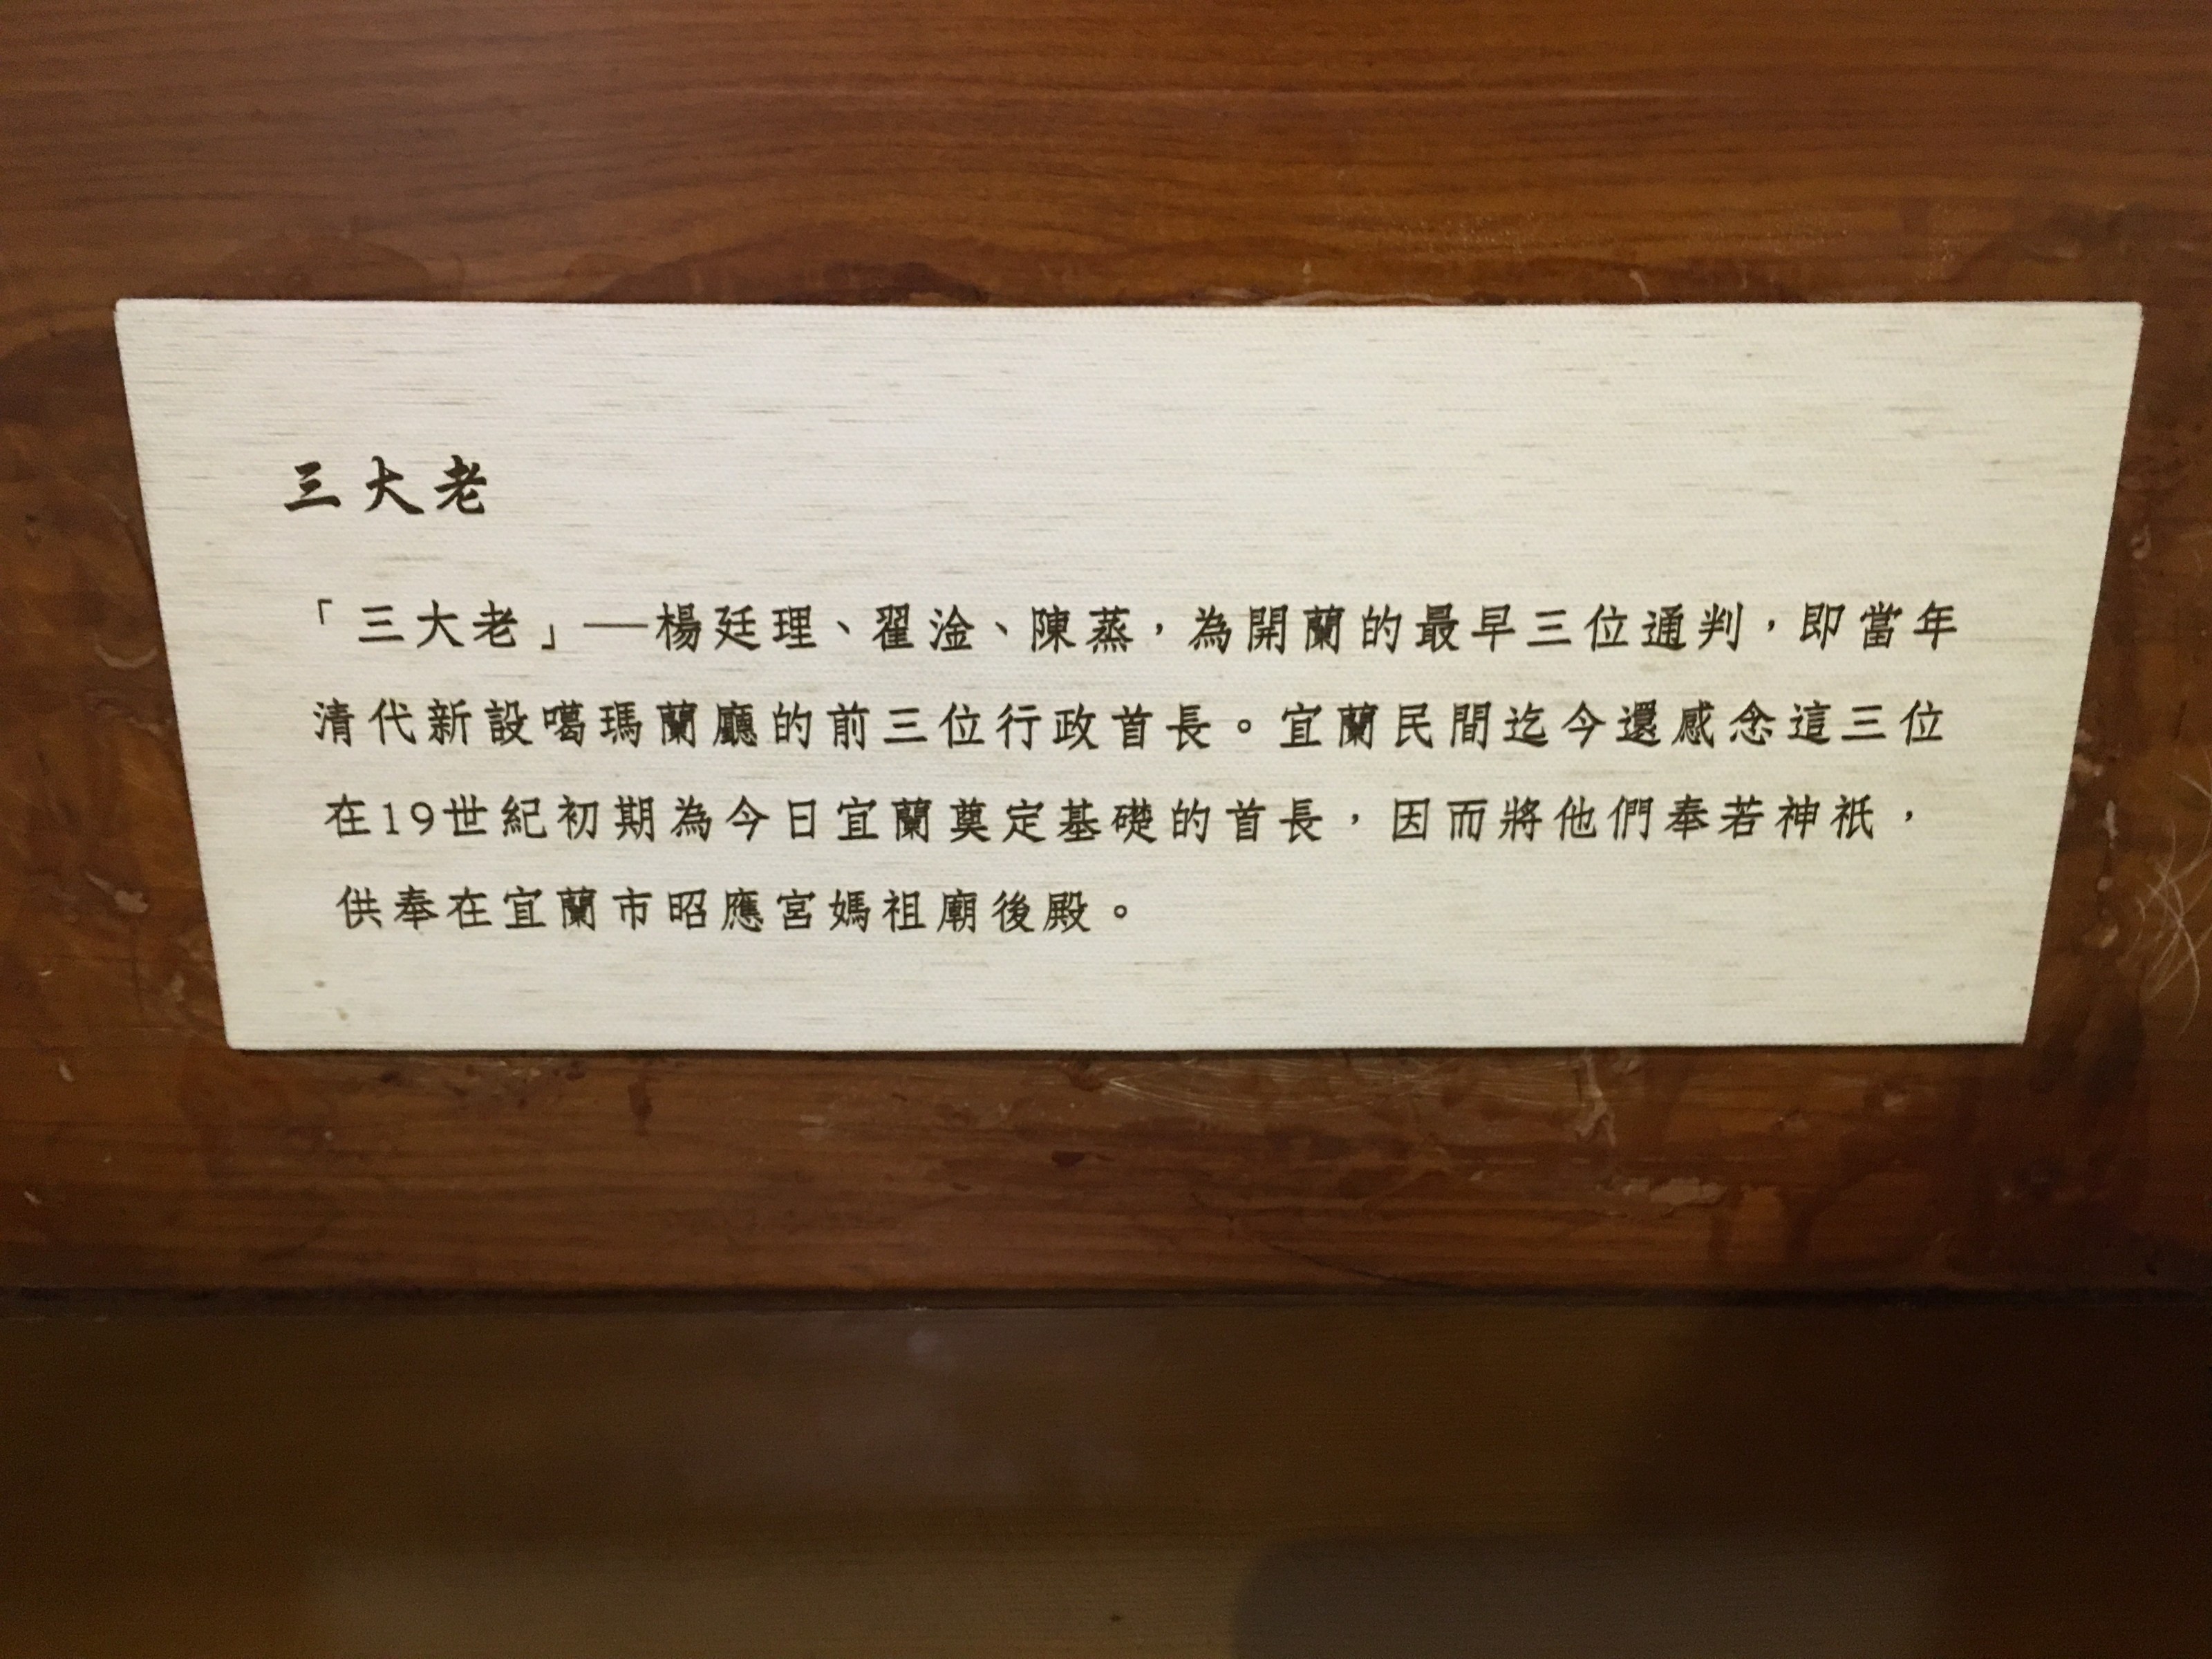 三大老
「三大老」──楊廷理、翟淦、陳蒸，為開蘭的最早三位通判，即當年
清代新設噶瑪蘭廳的前三位行政首長。宜蘭民間迄今還感念這三位
在19世紀初期為今日宜蘭奠定基礎的首長，因而將他們奉若神祇，
供奉在宜蘭市昭應宮媽祖廟後殿。